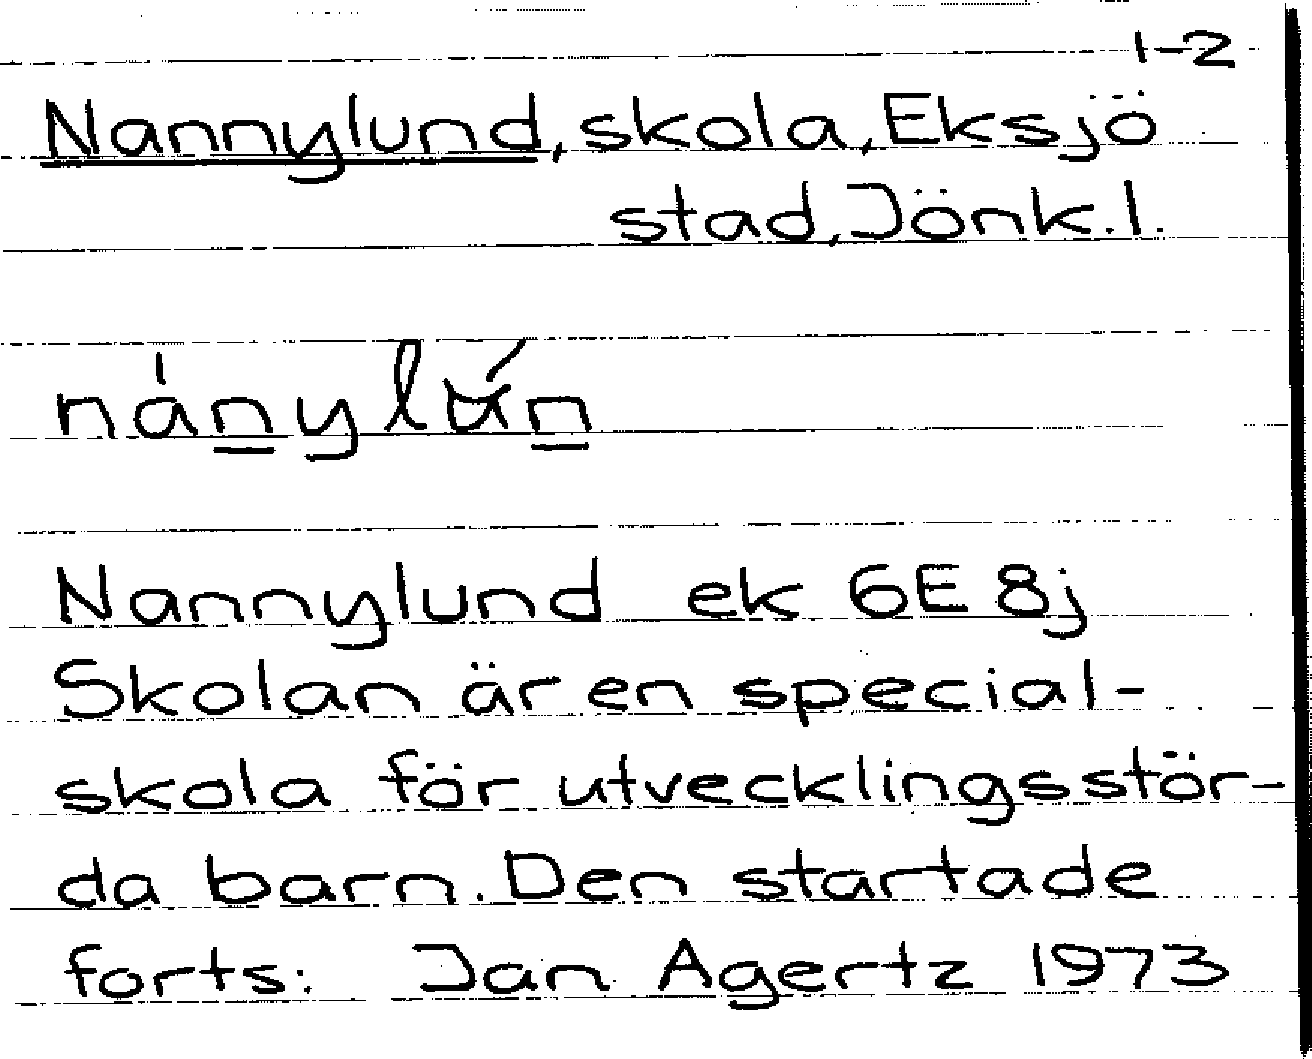 1-2
Nannylund, skola, Eksjö
stad, Jönk.l.
nànylún
Nannylund ek 6E8j
Skolan är en special-
skola för utvecklingsstör-
da barn. Den startade
forts: Jan Agertz 1973